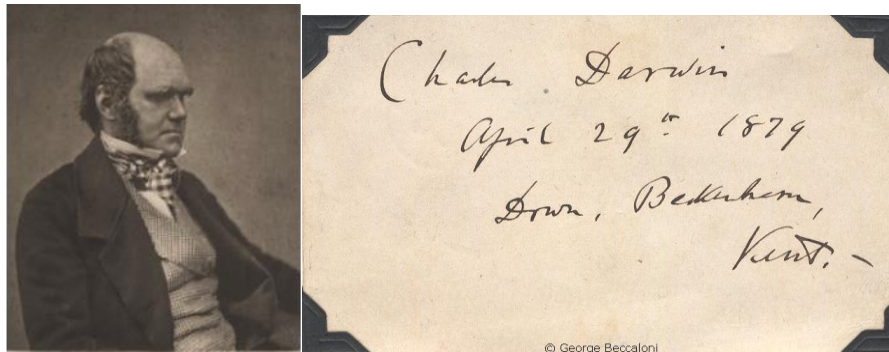 Charles Darwin
April 29th 1879
Down, Beckenham,
Kent. —
© George Beccaloni